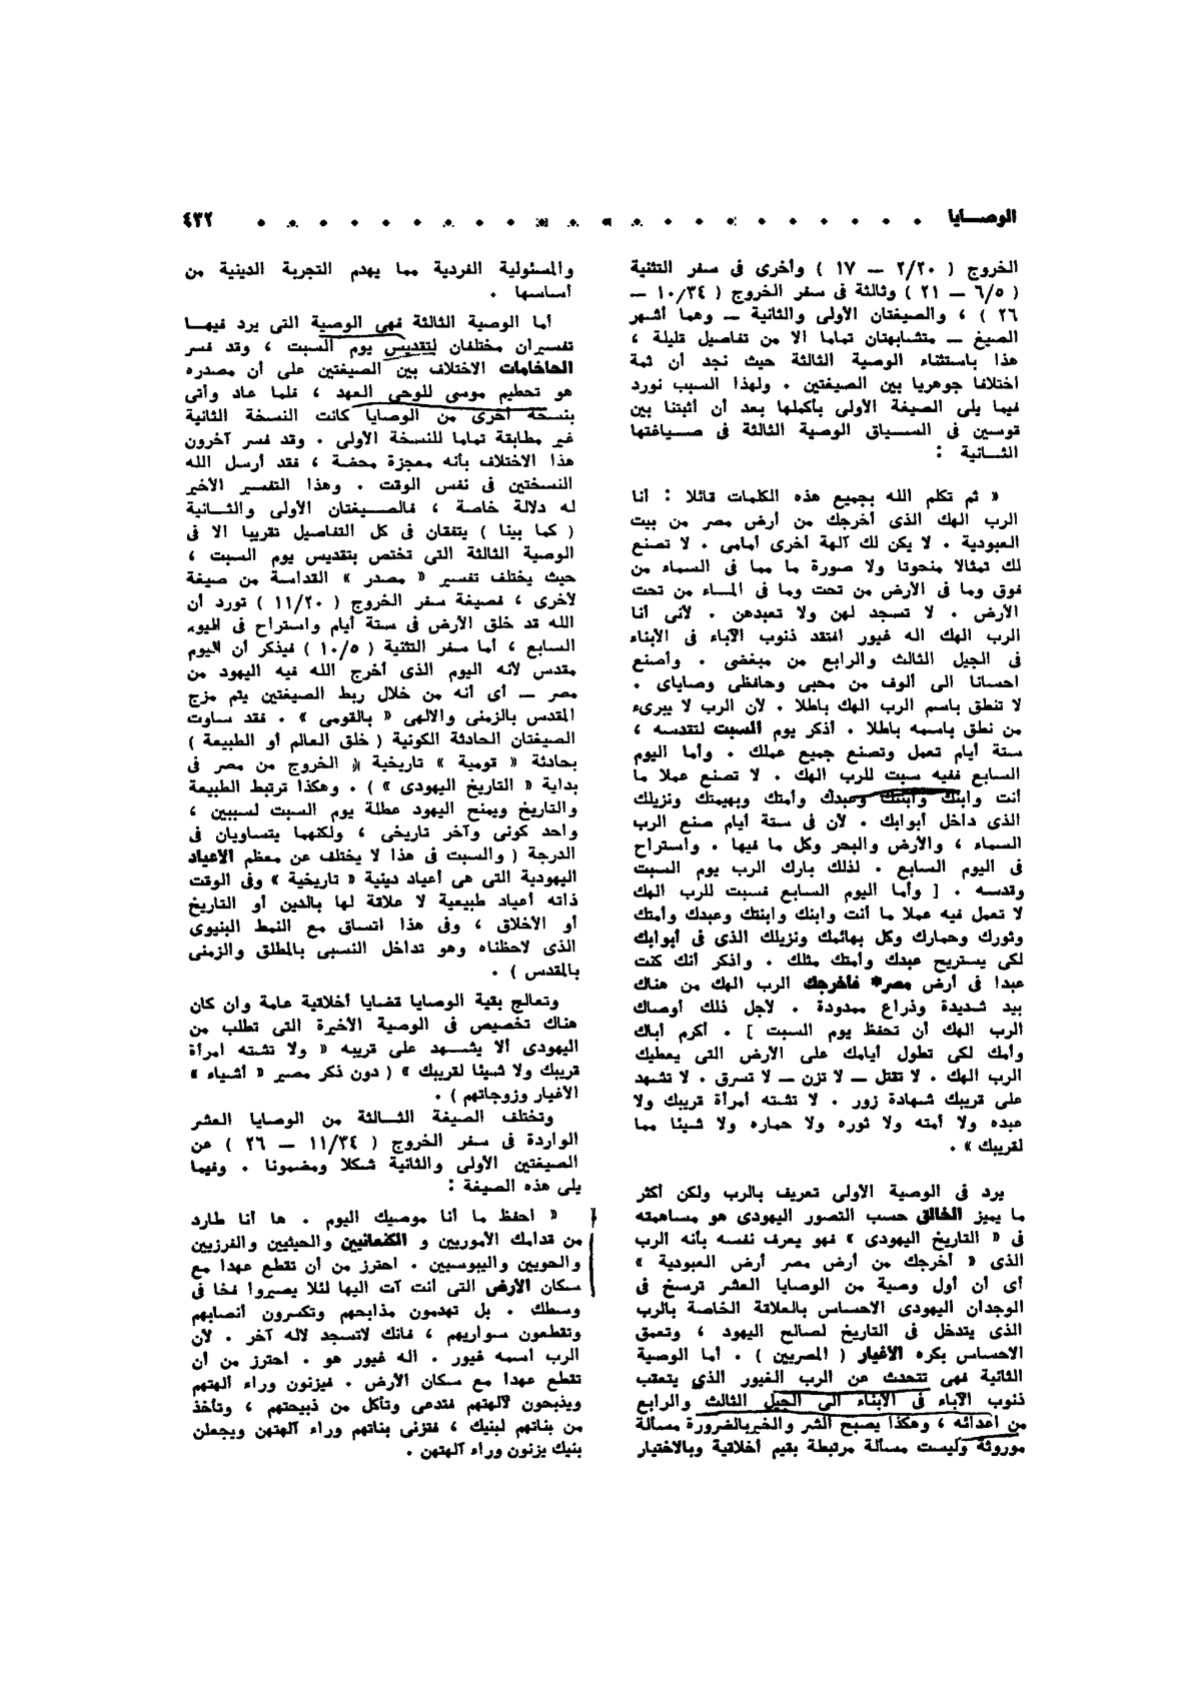 الوصـــايا ٤٣٢
الخروج ( ٢/٢٠ — ١٧ ) وأخرى فى سفر التثنية
( ٦/٥ — ٢١ ) وثالثة فى سفر الخروج ( ١٠/٣٤ —
٢٦ ) ، والصيغتان الأولى والثانية — وهما أشهر
الصيغ — متشابهتان تماما الا من تفاصيل قليلة ،
هذا باستثناء الوصية الثالثة حيث نجد أن ثمة
اختلافا جوهريا بين الصيغتين . ولهذا السبب نورد
فيما يلى الصيغة الأولى بأكملها بعد أن أثبتنا بين
قوسين فى الســـياق الوصية الثالثة فى صـــياغتها
الثـــانية :
« ثم تكلم الله بجميع هذه الكلمات قائلا : أنا
الرب الهك الذى أخرجك من أرض مصر من بيت
العبودية . لا يكن لك آلهة أخرى أمامى . لا تصنع
لك تمثالا منحوتا ولا صورة ما مما فى السماء من
فوق وما فى الأرض من تحت وما فى المـــاء من تحت
الأرض . لا تسجد لهن ولا تعبدهن . لأنى أنا
الرب الهك اله غيور افتقد ذنوب الآباء فى الأبناء
فى الجيل الثالث والرابع من مبغضى . وأصنع
احسانا الى ألوف من محبى وحافظى وصاياى .
لا تنطق باسم الرب الهك باطلا . لأن الرب لا يبرىء
من نطق باسمه باطلا . أذكر يوم السبت لتقدسه ،
ستة أيام تعمل وتصنع جميع عملك . وأما اليوم
السابع ففيه سبت للرب الهك . لا تصنع عملا ما
أنت وابنك وابنتك وعبدك وأمتك وبهيمتك ونزيلك
الذى داخل أبوابك . لأن فى ستة أيام صنع الرب
السماء ، والأرض والبحر وكل ما فيها . وأستراح
فى اليوم السابع . لذلك بارك الرب يوم السبت
وقدسه . [ وأما اليوم السابع فسبت للرب الهك
لا تعمل فيه عملا ما أنت وابنك وابنتك وعبدك وأمتك
وثورك وحمارك وكل بهائمك ونزيلك الذى فى أبوابك
لكى يستريح عبدك وأمتك مثلك . واذكر أنك كنت
عبدا فى أرض مصر* فأخرجك الرب الهك من هناك
بيد شديدة وذراع ممدودة . لاجل ذلك أوصاك
الرب الهك أن تحفظ يوم السبت ] . أكرم أباك
وأمك لكى تطول أيامك على الأرض التى يعطيك
الرب الهك . لا تقتل — لا تزن — لا تسرق . لا تشهد
على قريبك شهادة زور . لا تشته أمرأة قريبك ولا
عبده ولا أمته ولا ثوره ولا حماره ولا شيئا مما
لقريبك » .
يرد فى الوصية الأولى تعريف بالرب ولكن أكثر
ما يميز الخالق حسب التصور اليهودى هو مساهمته
فى « التاريخ اليهودى » فهو يعرف نفسه بأنه الرب
الذى « أخرجك من أرض مصر أرض العبودية »
أى أن أول وصية من الوصايا العشر ترسخ فى
الوجدان اليهودى الاحساس بالعلاقة الخاصة بالرب
الذى يتدخل فى التاريخ لصالح اليهود ، وتعمق
الاحساس بكره الأغيار ( المصريين ) . أما الوصية
الثانية فهى تتحدث عن الرب الغيور الذي يتعقب
ذنوب الآباء فى الأبناء الى الجيل الثالث والرابع
من أعدائه ، وهكذا يصبح الشر والخير بالضرورة مسألة
موروثة وليست مسألة مرتبطة بقيم أخلاقية وبالاختيار
والمسئولية الفردية مما يهدم التجربة الدينية من
أساسها .
أما الوصية الثالثة فهى الوصية التى يرد فيهـــا
تفسيران مختلفان لتقديس يوم السبت ، وقد فسر
الحاخامات الاختلاف بين الصيغتين على أن مصدره
هو تحطيم موسى للوحى العهد ، فلما عاد وأتى
بنسخة أخرى من الوصايا كانت النسخة الثانية
غير مطابقة تماما للنسخة الأولى . وقد فسر آخرون
هذا الاختلاف بأنه معجزة محضة ، فقد أرسل الله
النسختين فى نفس الوقت . وهذا التفسير الأخير
له دلالة خاصة ، فالصـــيغتان الأولى والثـــانية
( كما بينا ) يتفقان فى كل التفاصيل تقريبا الا فى
الوصية الثالثة التى تختص بتقديس يوم السبت ،
حيث يختلف تفسير « مصدر » القداسة من صيغة
لأخرى ، فصيغة سفر الخروج ( ١١/٢٠ ) تورد أن
الله قد خلق الأرض فى ستة أيام واستراح فى اليوم
السابع ، أما سفر التثنية ( ١٠/٥ ) فيذكر أن اليوم
مقدس لأنه اليوم الذى أخرج الله فيه اليهود من
مصر — أى أنه من خلال ربط الصيغتين يتم مزج
المقدس بالزمنى والالهى « بالقومى » . فقد ساوت
الصيغتان الحادثة الكونية ( خلق العالم أو الطبيعة )
بحادثة « قومية » تاريخية ( الخروج من مصر فى
بداية « التاريخ اليهودى » ) . وهكذا ترتبط الطبيعة
والتاريخ ويمنح اليهود عطلة يوم السبت لسببين ،
واحد كونى وآخر تاريخى ، ولكنهما يتساويان فى
الدرجة ( والسبت فى هذا لا يختلف عن معظم الأعياد
اليهودية التى هى أعياد دينية « تاريخية » وفى الوقت
ذاته أعياد طبيعية لا علاقة لها بالدين أو التاريخ
أو الأخلاق ، وفى هذا اتساق مع النمط البنيوى
الذى لاحظناه وهو تداخل النسبى بالمطلق والزمنى
بالمقدس ) .
وتعالج بقية الوصايا قضايا أخلاقية عامة وان كان
هناك تخصيص فى الوصية الأخيرة التى تطلب من
اليهودى ألا يشـــهد على قريبه « ولا تشته امرأة
قريبك ولا شيئا لقريبك » ( دون ذكر مصير « أشياء »
الأغيار وزوجاتهم ) .
وتختلف الصيغة الثـــالثة من الوصايا العشر
الواردة فى سفر الخروج ( ١١/٣٤ — ٢٦ ) عن
الصيغتين الأولى والثانية شكلا ومضمونا . وفيما
يلى هذه الصيغة :
« احفظ ما أنا موصيك اليوم . ها أنا طارد
من قدامك الأموريين و الكنعانيين والحيثيين والفرزيين
والحويين واليبوسيين . احترز من أن تقطع عهدا مع
سكان الأرض التى أنت آت اليها لئلا يصيروا فخا فى
وسطك . بل تهدمون مذابحهم وتكسرون أنصابهم
وتقطعون سواريهم ، فانك لاتسجد لاله آخر . لأن
الرب اسمه غيور . اله غيور هو . احترز من أن
تقطع عهدا مع سكان الأرض . فيزنون وراء آلهتهم
ويذبحون لآلهتهم فتدعى وتأكل من ذبيحتهم ، وتأخذ
من بناتهم لبنيك ، فتزنى بناتهم وراء آلهتهن ويجعلن
بنيك يزنون وراء آلهتهن .